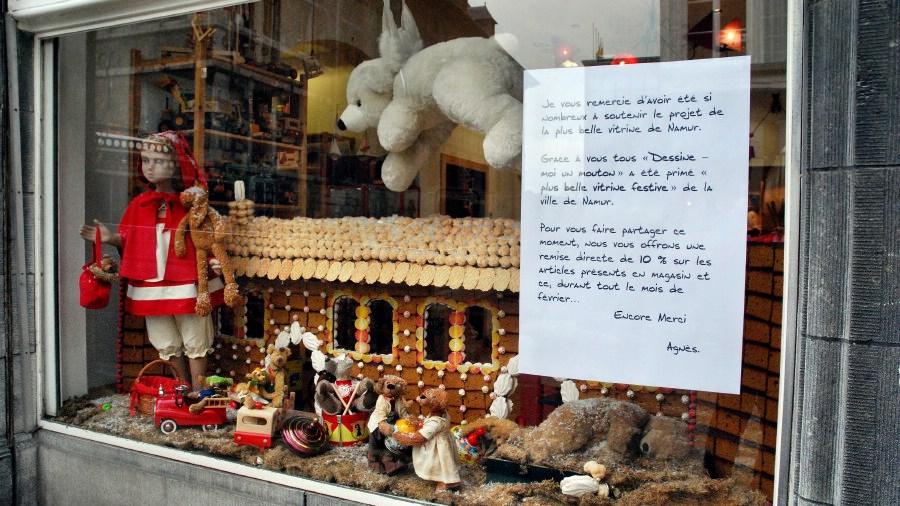 Je vous remercie d'avoir été si
nombreux à soutenir le projet de
la plus belle vitrine de Namur.
Grâce à vous tous « Dessine –
moi un mouton » a été primé «
plus belle vitrine festive » de la
ville de Namur.
Pour vous faire partager ce
moment, nous vous offrons une
remise directe de 10 % sur les
articles présents en magasin et
ce, durant tout le mois de
février...
Encore Merci
Agnès.